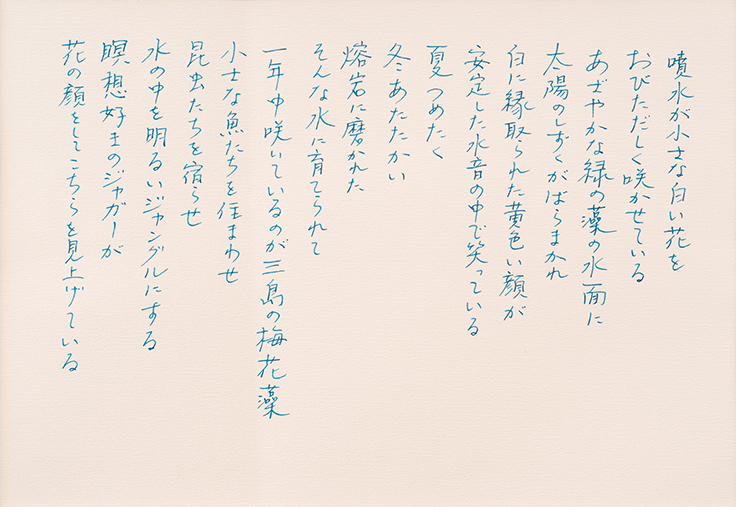 噴水が小さな白い花を
おびただしく咲かせている
あざやかな緑の藻の水面に
太陽のしずくがばらまかれ
白に縁取られた黄色い顔が
安定した水音の中で笑っている
夏つめたく
冬あたたかい
熔岩に磨かれた
そんな水に育てられて
一年中咲いているのが三島の梅花藻
小さな魚たちを住まわせ
昆虫たちを宿らせ
水の中を明るいジャングルにする
瞑想好きのジャガーが
花の顔をしてこちらを見上げている